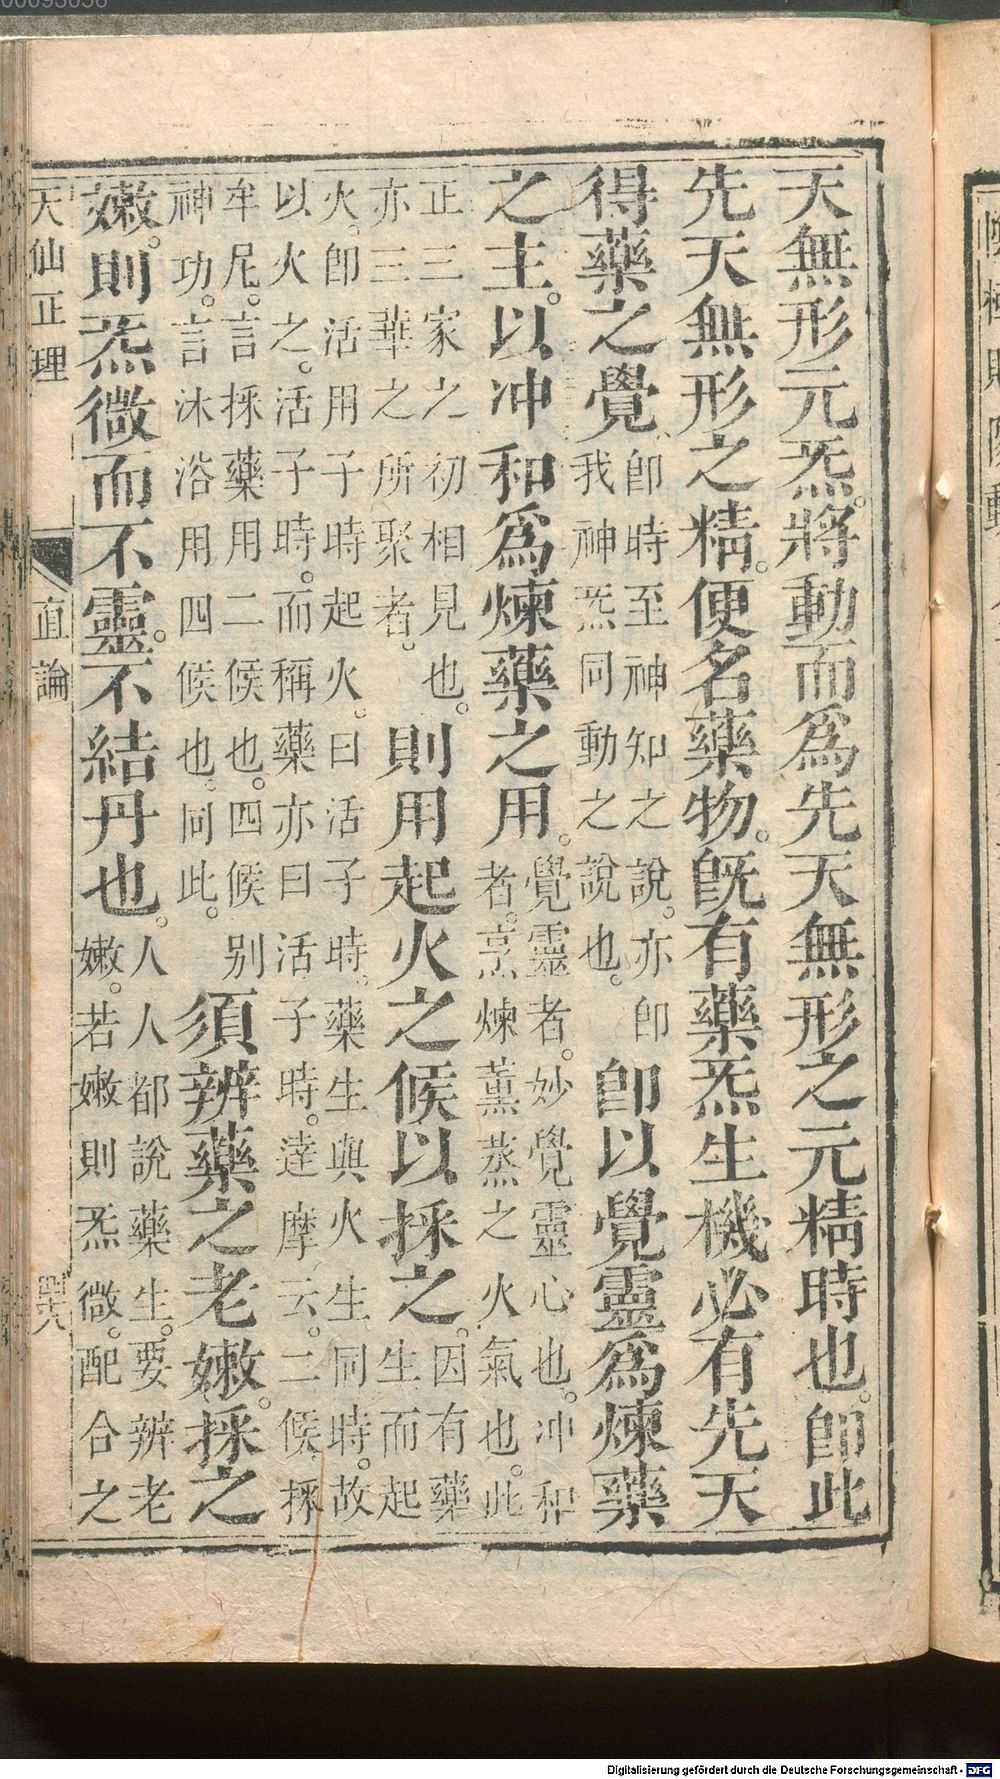 天無形元炁。將動而為先天無形之元精時也。卽此
先天無形之精。便名藥物。旣有藥炁生機必有先天
得藥之覺、卽時至神知之說。亦卽
我神炁同動之說也。
卽以覺靈為煉藥
之主。以冲和為煉藥之用。覺靈者。妙覺靈心也。冲和
者。烹煉薰蒸之火氣也。此
正三家之初相見也。
亦三華之所聚者。
則用起火之候以採之。因有藥
生而起
火。卽活用子時起火。曰活子時。藥生與火生同時。故
以火之。活子時。而稱藥亦曰活子時。達摩云。二候採
牟尼。言採藥用二候也。四候别
神功。言沐浴用四候也。同此。
須辨藥之老嫩。採之
嫩。則炁微而不靈。不結丹也。人人都說藥生。要辨老
嫩。若嫩則炁微。配合之
天仙正理
直論
慨極則陰動
Digitalisierung gefördert durch die Deutsche Forschungsgemeinschaft - DFG